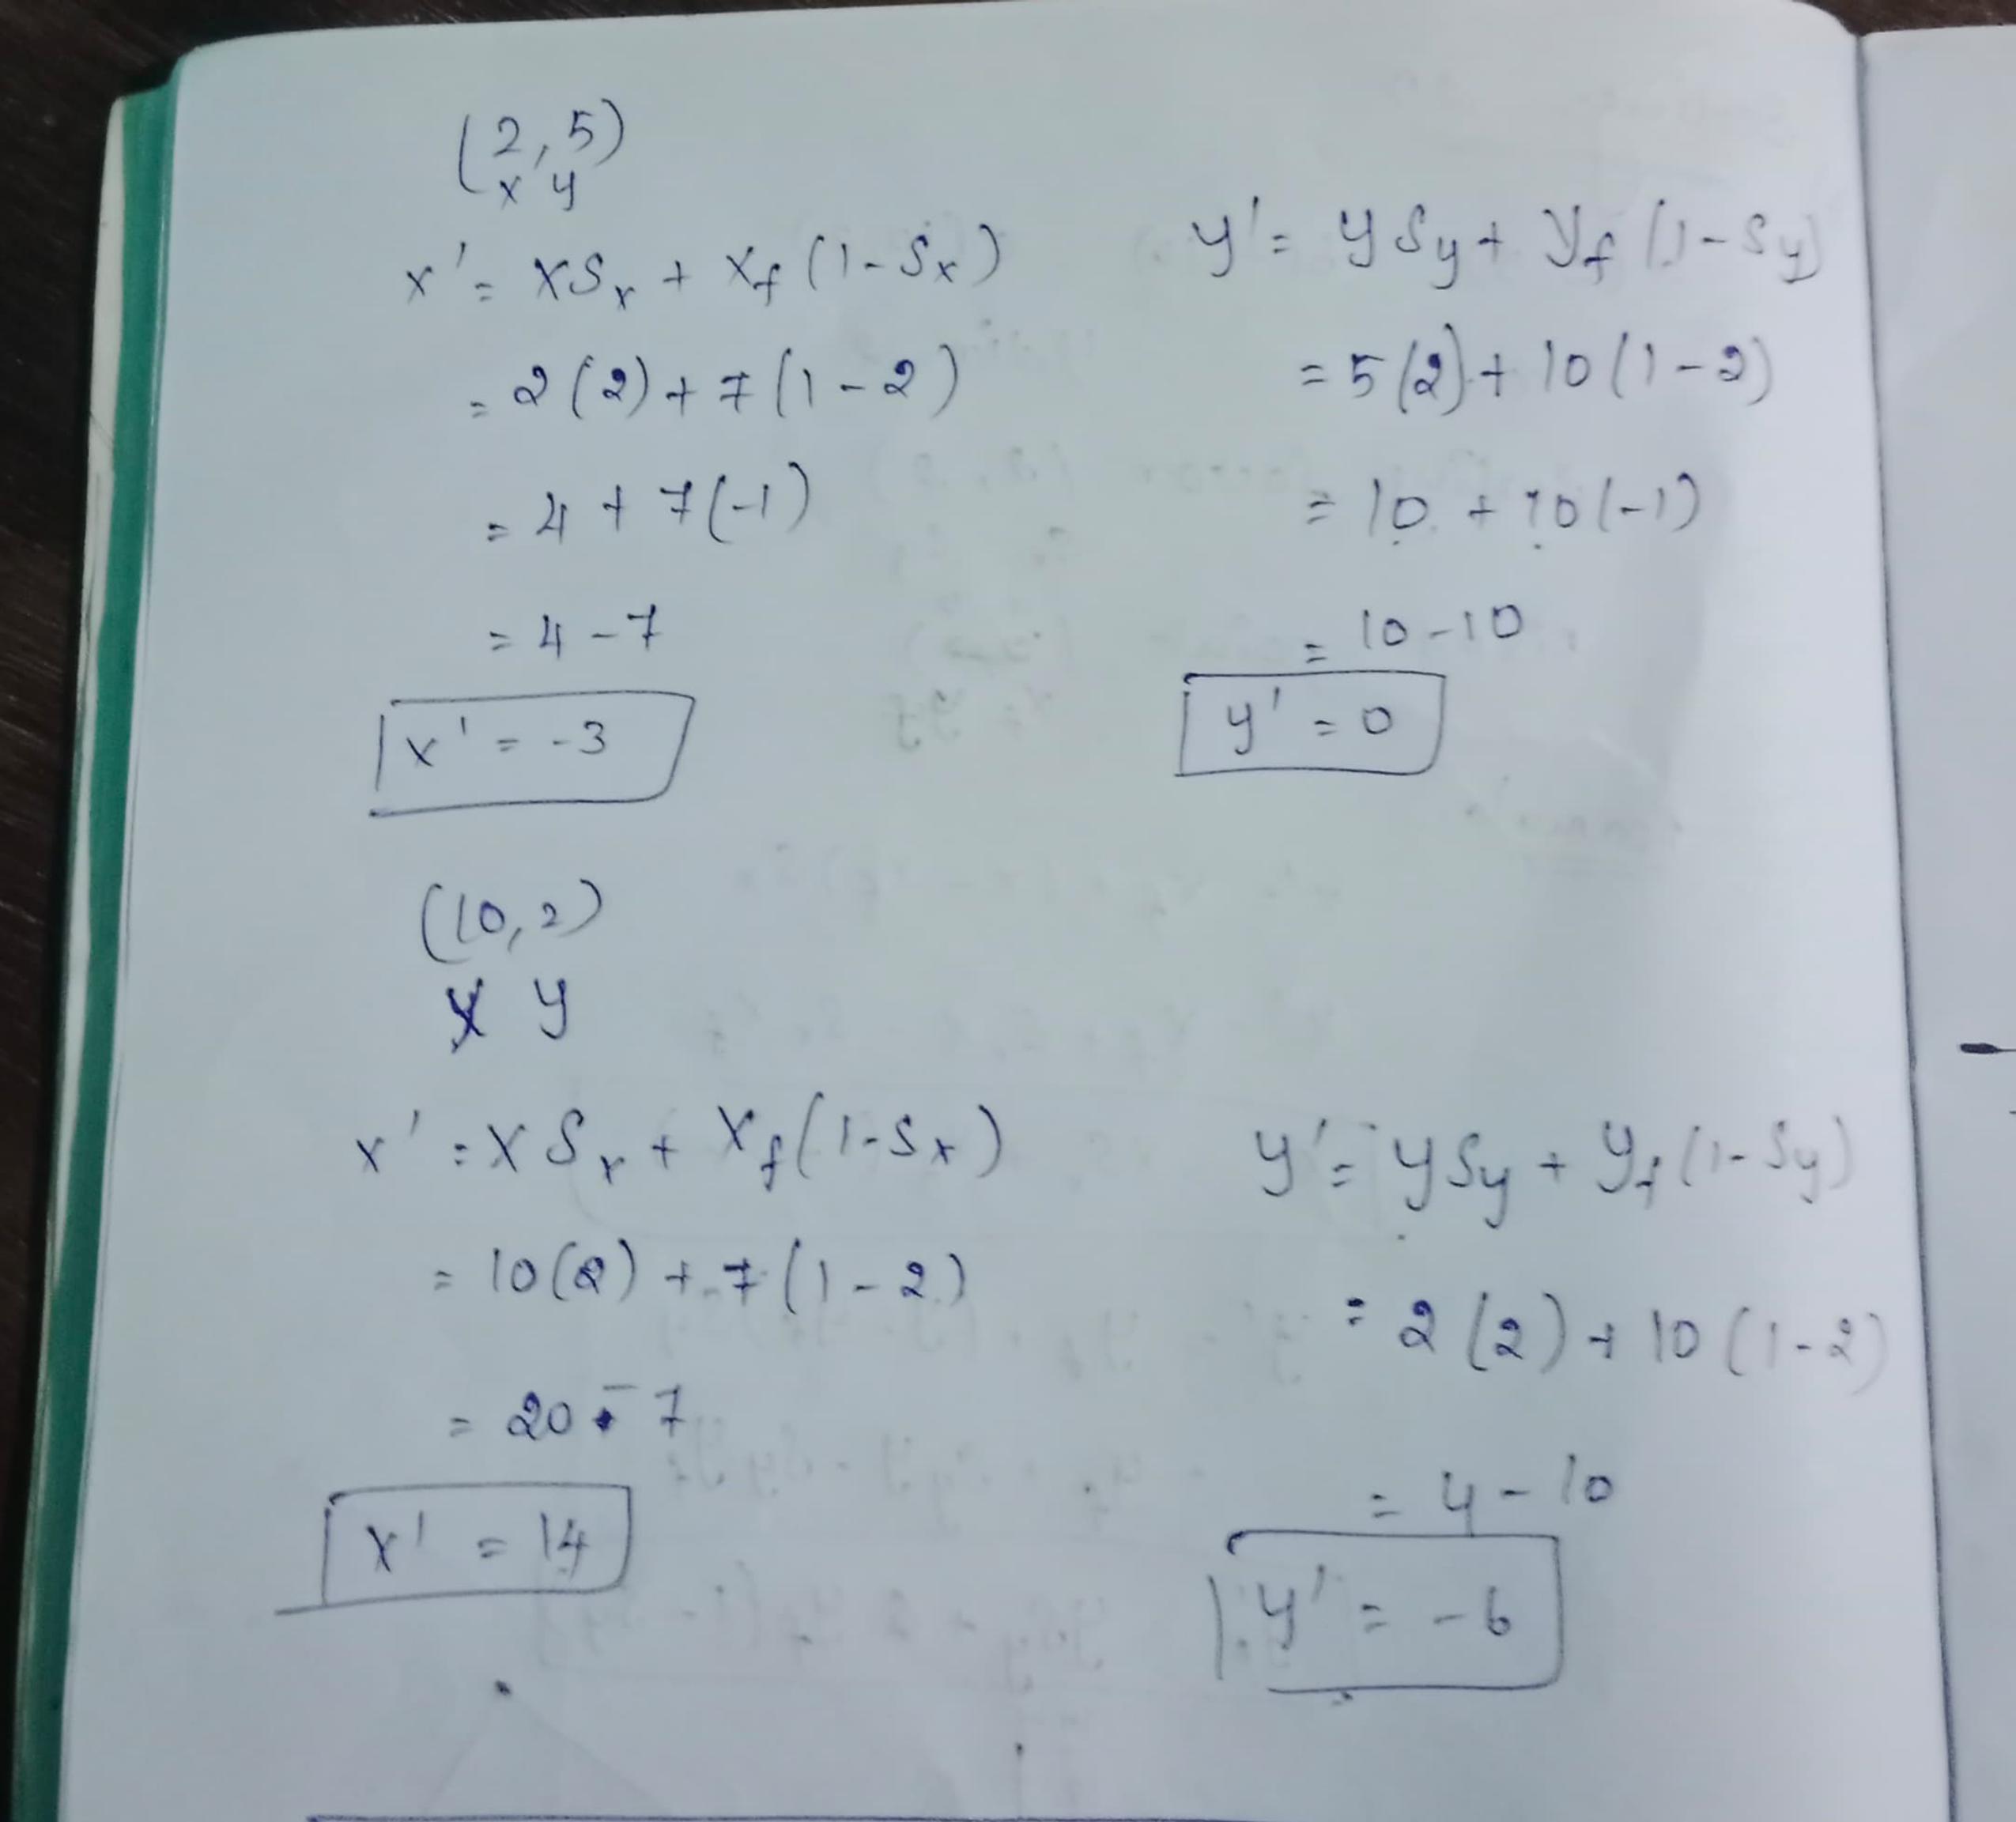 (2, 5)
x y
x' = xSx + xf (1-Sx)
= 2(2) + 7(1-2)
= 4 + 7(-1)
= 4 - 7
x' = -3
y' = ySy + yf (1-Sy)
= 5(2) + 10(1-2)
= 10 + 10(-1)
= 10-10
y' = 0
(10, 2)
x y
x' = x Sx + xf (1-Sx)
= 10(2) + 7(1-2)
= 20 - 7
x' = 14
y' = ySy + yf (1-Sy)
= 2(2) + 10(1-2)
= 4 - 10
y' = -6